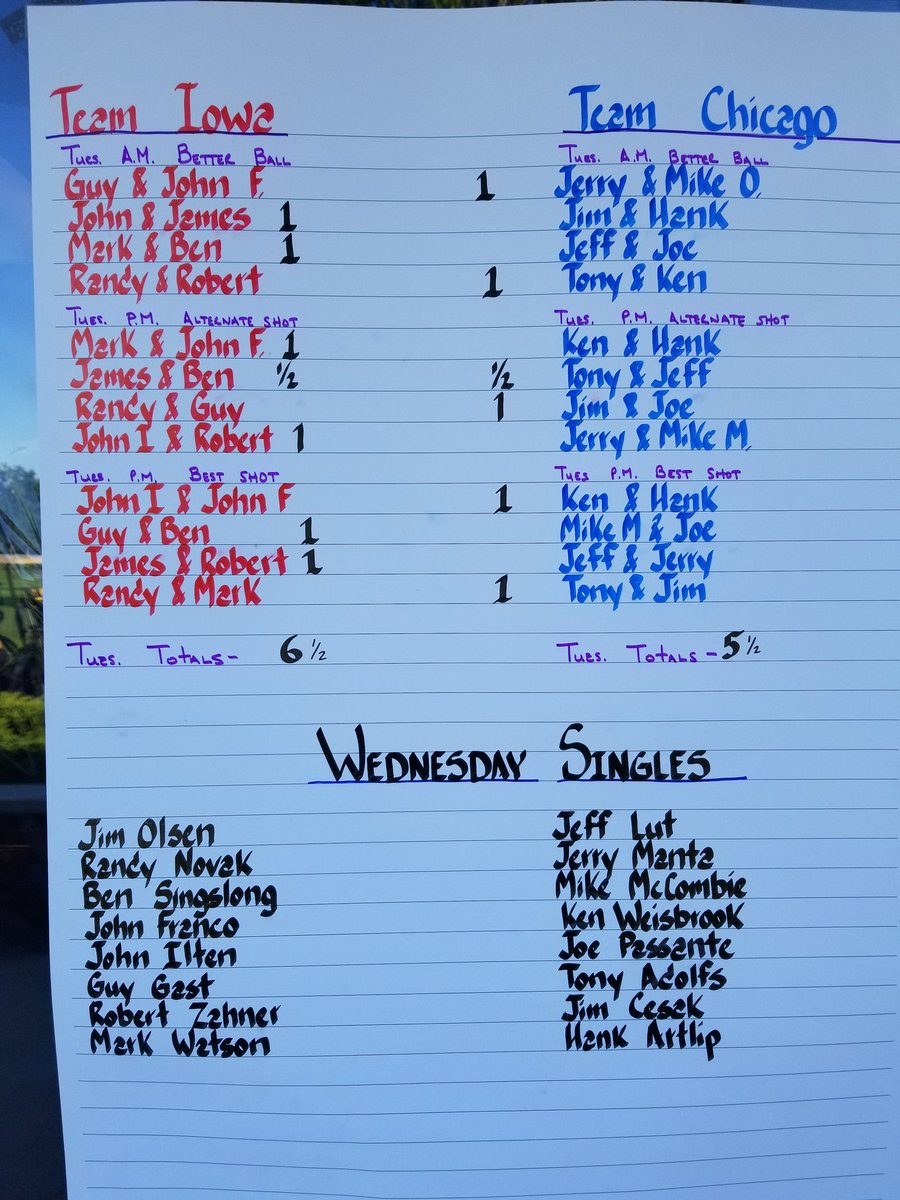 Team Iowa Team Chicago
Tues. A.M. Better Ball Tues. A.M. Better Ball
Guy & John F. 1 Jerry & Mike O.
John & James 1 Jim & Hank
Mark & Ben 1 Jeff & Joe
Randy & Robert 1 Tony & Ken
Tues. P.M. Alternate Shot Tues. P.M. Alternate Shot
Mark & John F. 1 Ken & Hank
James & Ben ½ ½ Tony & Jeff
Randy & Guy 1 Jim & Joe
John I & Robert 1 Jerry & Mike M.
Tues. P.M. Best Shot Tues P.M. Best Shot
John I & John F 1 Ken & Hank
Guy & Ben 1 Mike M & Joe
James & Robert 1 Jeff & Jerry
Randy & Mark 1 Tony & Jim
Tues. Totals - 6 ½ Tues. Totals - 5 ½
Wednesday Singles
Jim Olsen Jeff Lut
Randy Novak Jerry Manta
Ben Singslong Mike McCombie
John Franco Ken Weisbrook
John Ilten Joe Passante
Guy Gast Tony Adolfs
Robert Zahner Jim Cesak
Mark Watson Hank Artlip